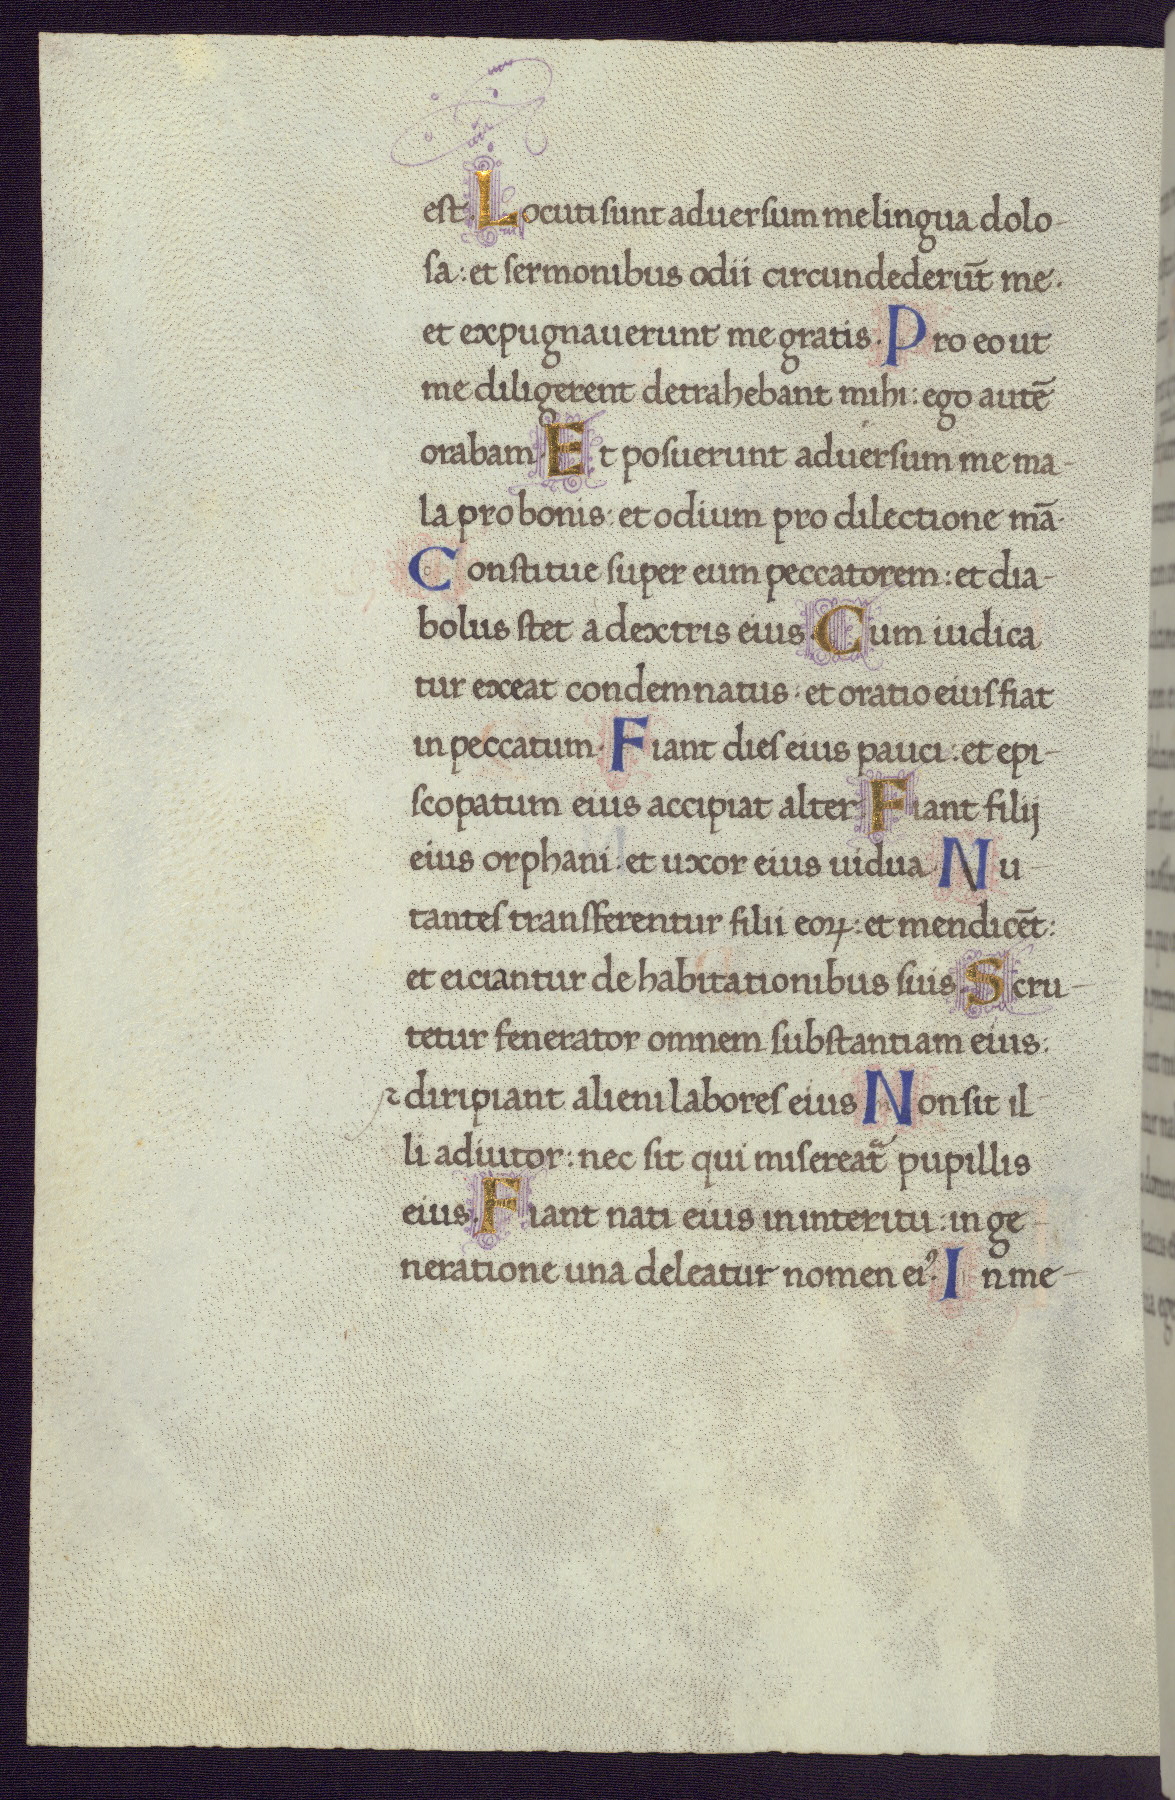 est. Locuti sunt aduersum me lingua dolo-
sa: et sermonibus odii circundederūt me.
et expugnauerunt me gratis. Pro eo ut
me diligerent detrahebant mihi: ego autē
orabam. Et posuerunt aduersum me ma-
la pro bonis: et odium pro dilectione mā.
Constitue super eum peccatorem: et dia-
bolus stet a dextris eius. Cum iudica
tur exeat condemnatus: et oratio eius fiat
in peccatum. Fiant dies eius pauci: et epi-
scopatum eius accipiat alter. Fiant filij
eius orphani: et uxor eius uidua. Nu-
tantes transferentur filii eoꝝ: et mendicēt:
et eiciantur de habitationibus suis. Scru-
tetur fenerator omnem substantiam eius:
⁊ diripiant alieni labores eius. Non sit il-
li adiutor: nec sit qui misereat̃ pupillis
eius. Fiant nati eius in interitu: in ge-
neratione una deleatur nomen eiꝰ. In me-